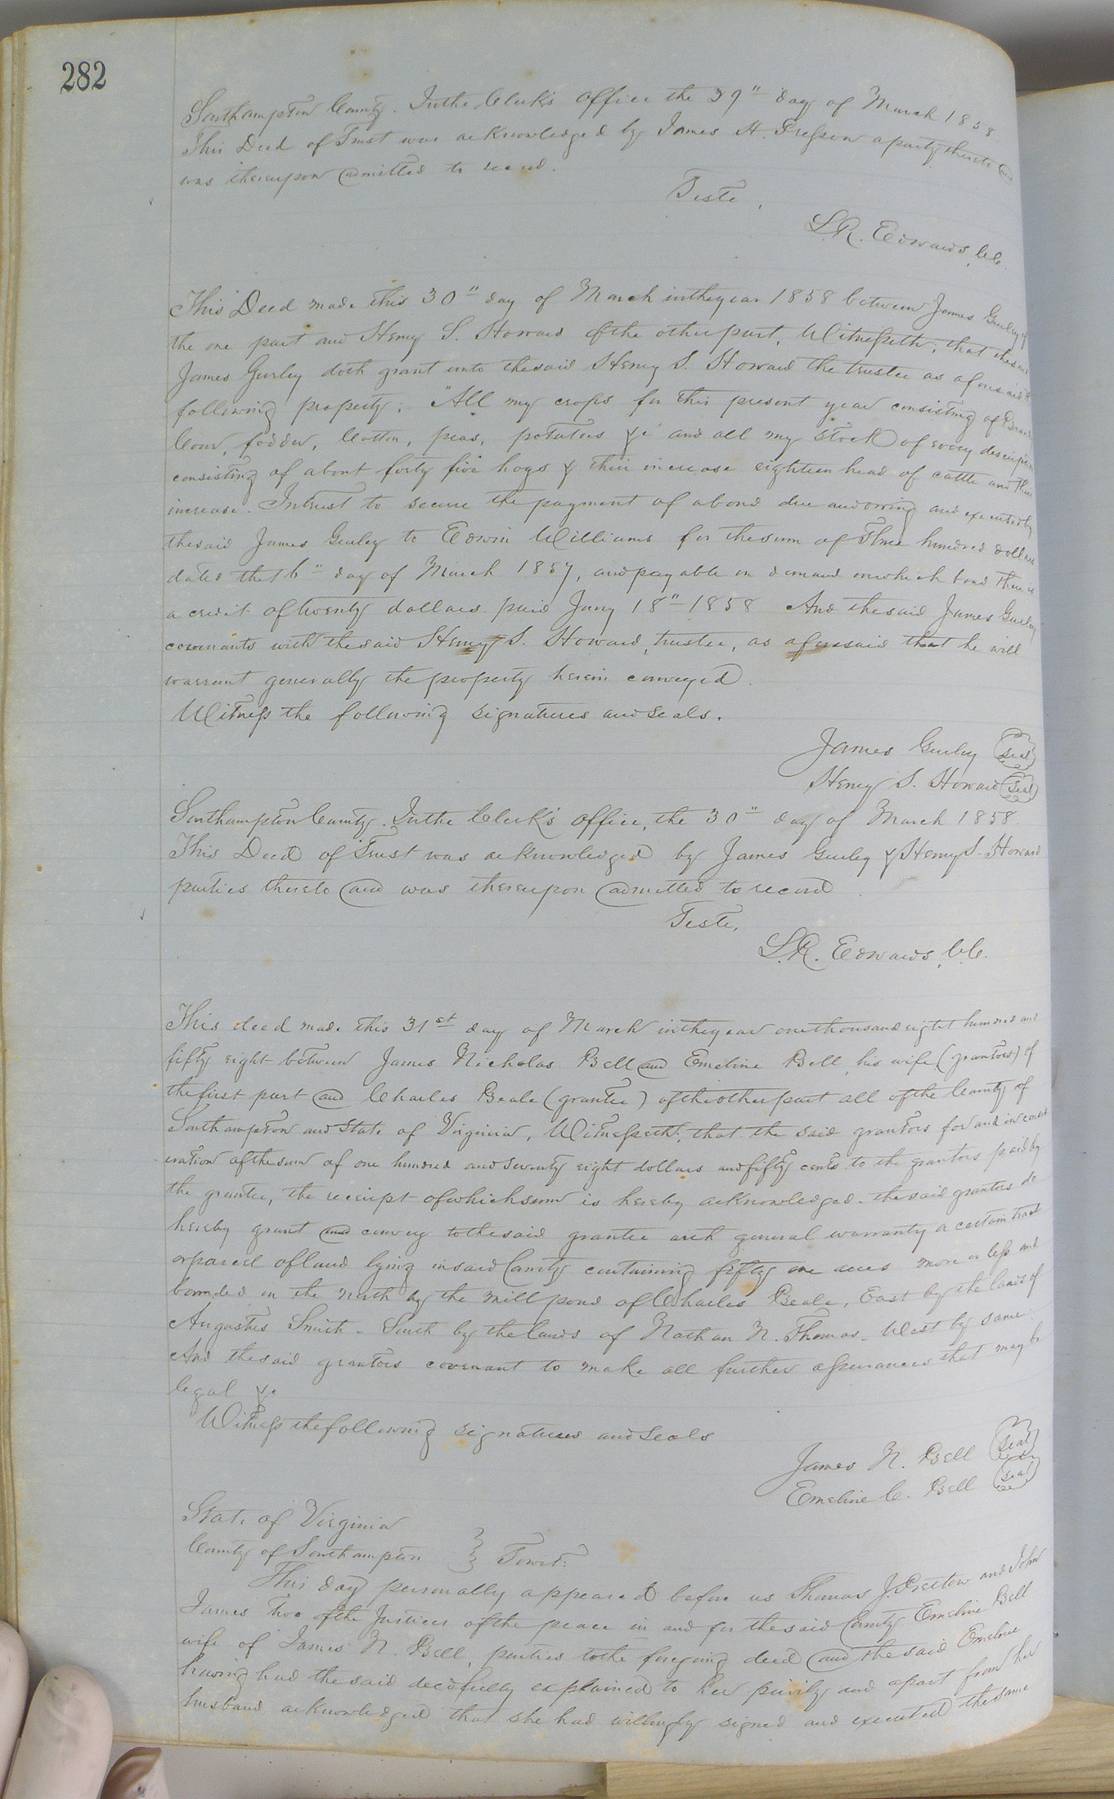 282
Southampton County. In the Clerk's office the 29" day of March 1858
This Deed of Trust was acknowledged by James H. a party thereto and
was thereupon admitted to record.
Teste,
L.R. Edwards, C.C.
This Deed made this 30" day of March in the year 1858 between James Gurley of
the one part and Henry S. Howard of the other part, Witnesseth, that the said
James Gurley doth grant unto the said Henry S. Howard the trustee as aforesaid the
following property: "All my crops for this present year consisting of
Corn, fodder, Cotton, peas, potatoes &c and all my stock of every description
consisting of about forty five hogs & their increase eighteen head of cattle and their
increase. In trust to secure the payment of a bond due and owing and executed by
the said James Gurley to Edwin Williams for the sum of Three hundred dollars
dated the 16" day of March 1857, and payable on demand on which bond there is
a credit of twenty dollars paid Jany 18" 1858 And the said James Gurley
covenants with the said Henry S. Howard, trustee, as aforesaid that he will
warrant generally the property herein conveyed.
Witness the following signatures and seals.
James Gurley (Seal)
Henry S. Howard (Seal)
Southampton County. In the Clerk's office, the 30" day of March 1858.
This Deed of Trust was acknowledged by James Gurley & Henry S. Howard
parties thereto and was thereupon admitted to record
Teste,
L.R. Edwards, C.C.
This deed made this 31st day of March in the year one thousand eight hundred and
fifty eight between James Nicholas Bell and Emeline Bell, his wife (grantors) of
the first part and Charles Beale (grantee) of the other part all of the County of
Southampton and State of Virginia, Witnesseth, that the said grantors for and in consid
eration of the sum of one hundred and seventy eight dollars and fifty cents to the grantors paid by
the grantee, the receipt of which sum is hereby acknowledged the said grantors do
hereby grant and convey to the said grantee with general warranty a certain tract
or parcel of land lying in said County containing fifty one acres more or less and
bounded on the north by the mill pond of Charles Beale, East by the lands of
Augustus Smith - South by the lands of Nathan N. Thomas - West by same.
And the said grantors covenant to make all further assurances that may be
legal &c
Witness the following signatures and seals
James N. Bell (Seal)
Emeline C. Bell (Seal)
State of Virginia
County of Southampton } Towit:
This day personally appeared before us Thomas J. Pretlow and John
James two of the Justices of the peace in and for the said County Emeline Bell
wife of James N. Bell, parties to the foregoing deed and the said Emeline
having had the said deed fully explained to her privily and apart from her
husband acknowledged that she had willingly signed and executed the same